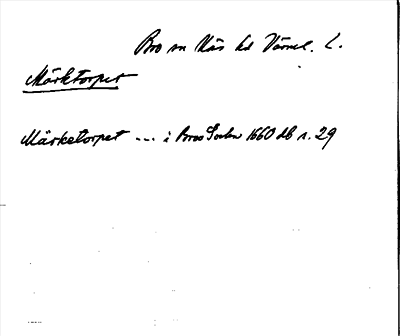 Bro sn Näs hd Värml. L.
Märktorpet
Märketorpet --- i Broo Sochn 1660 db s. 29